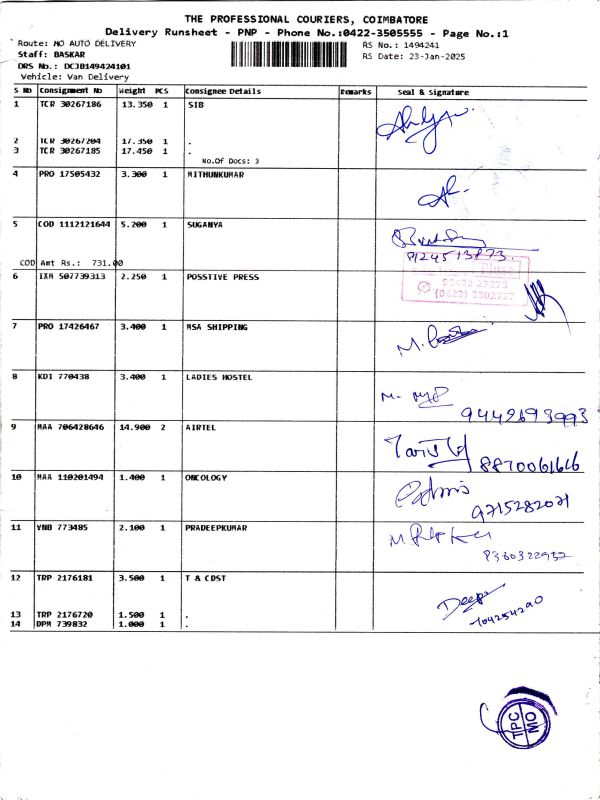 THE PROFESSIONAL COURIERS, COIMBATORE
Delivery Runsheet - PNP - Phone No.:0422-3505555 - Page No.:1
Route: MO AUTO DELIVERY
RS No.: 1494241
Staff: BASKAR
RS Date: 23-Jan-2025
DRS No.: DCJB149424101
Vehicle: Van Delivery
S No Consignment No Weight PCS Consignee Details Remarks Seal & Signature
1 TCR 30267186 13.350 1 SIB
2 TCR 30267204 17.350 1 .
3 TCR 30267185 17.450 1 .
No.Of Docs: 3
4 PRO 17505432 3.300 1 MITHUNKUMAR
5 COD 1112121644 5.200 1 SUGANYA
8124513873.
COD Amt Rs.: 731.00
6 IXM 507739313 2.250 1 POSSTIVE PRESS
7 PRO 17426467 3.400 1 MSA SHIPPING
8 KDI 770438 3.400 1 LADIES HOSTEL
9442693993
9 MAA 706428646 14.900 2 AIRTEL
8870061616
10 MAA 110201494 1.400 1 ONCOLOGY
9715282071
11 VNB 773485 2.100 1 PRADEEPKUMAR
12 TRP 2176181 3.500 1 T & CDST
Deepa
13 TRP 2176720 1.500 1 .
14 DPM 739832 1.000 1 .
TPC
MO